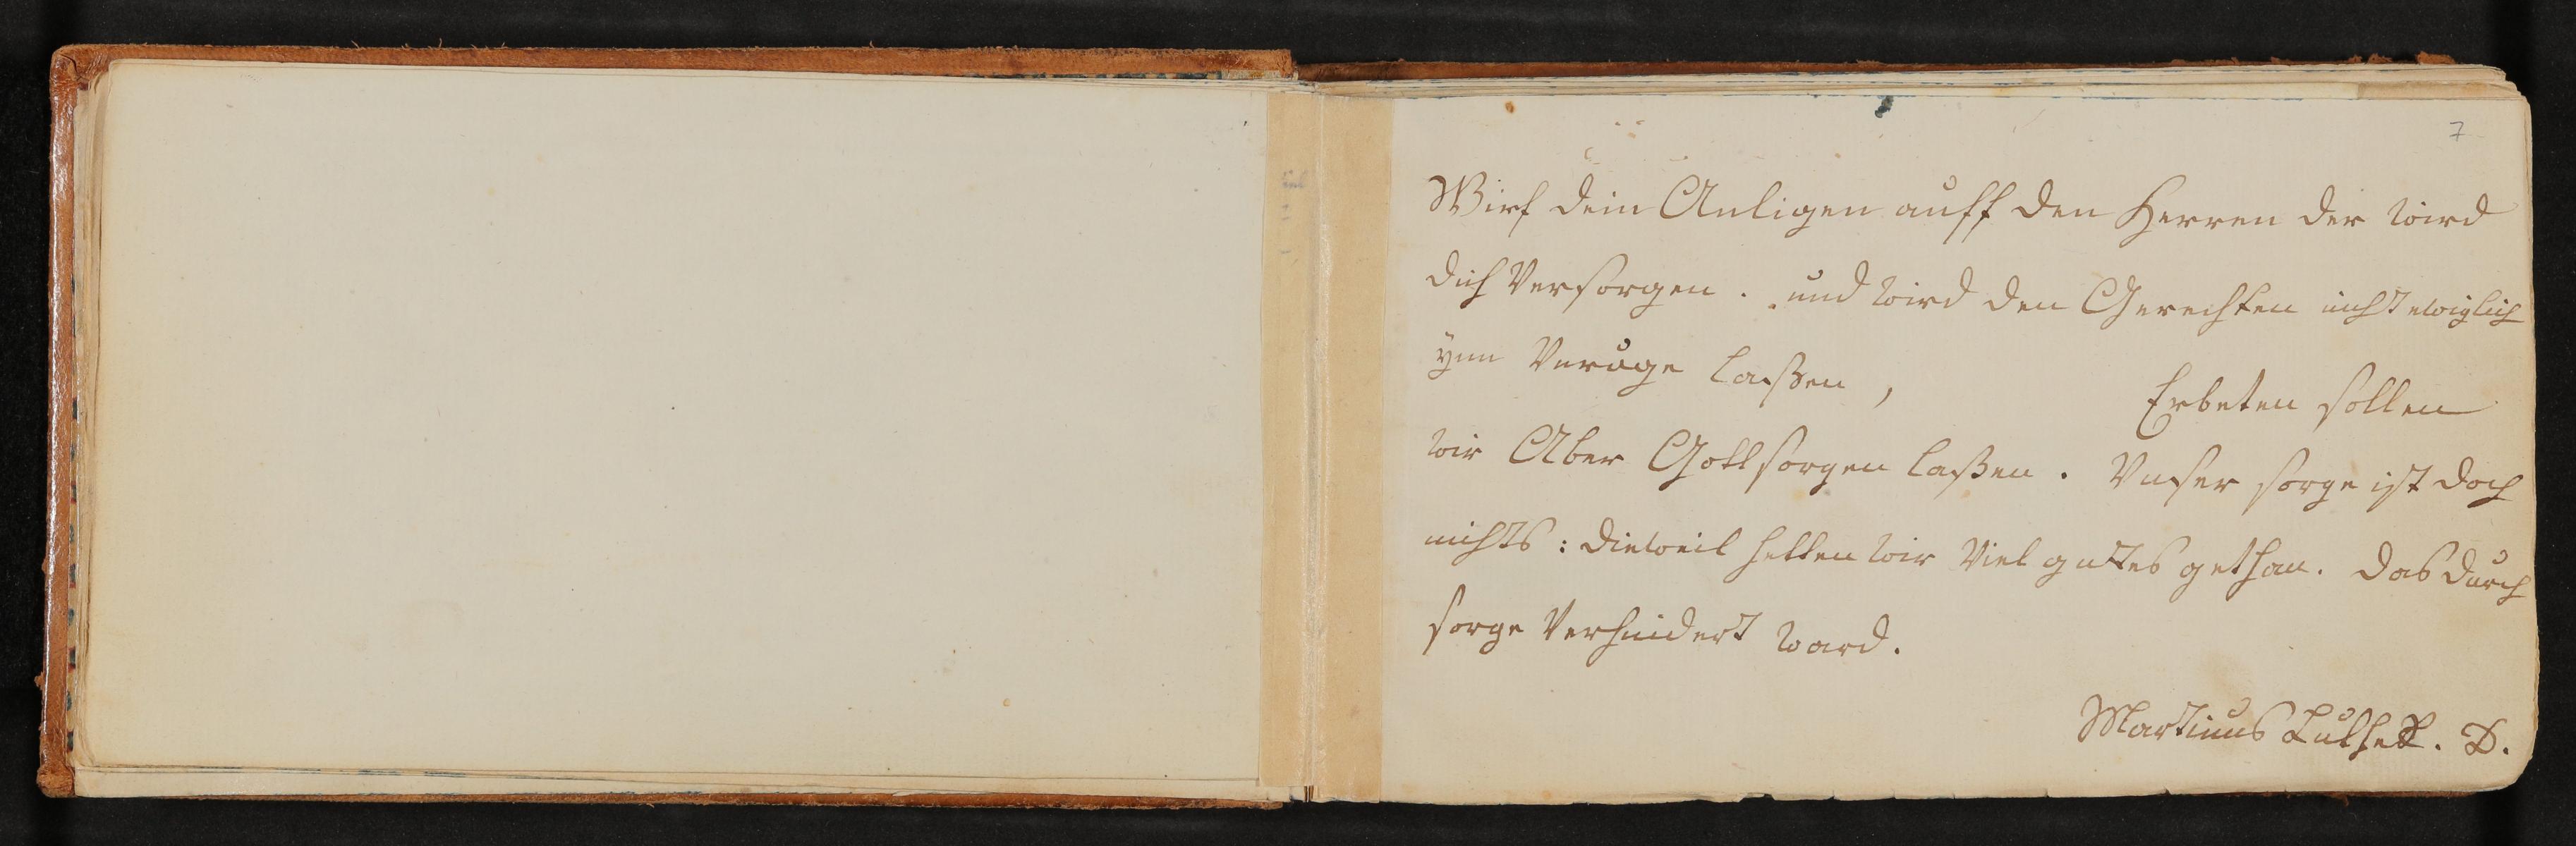 7
Wirf dein Anligen auff den Herren der wird
dich Versorgen. und wird den Gerechten nicht ewiglich
ynn Vnruge laßen,
Erbeten sollen
wir Aber Gott sorgen laßen. Vnser sorge ist doch
nichts: dieweil hetten wir Viel gutes gethan. das durch
sorge Verhindert ward.
Martinus Luther. D.